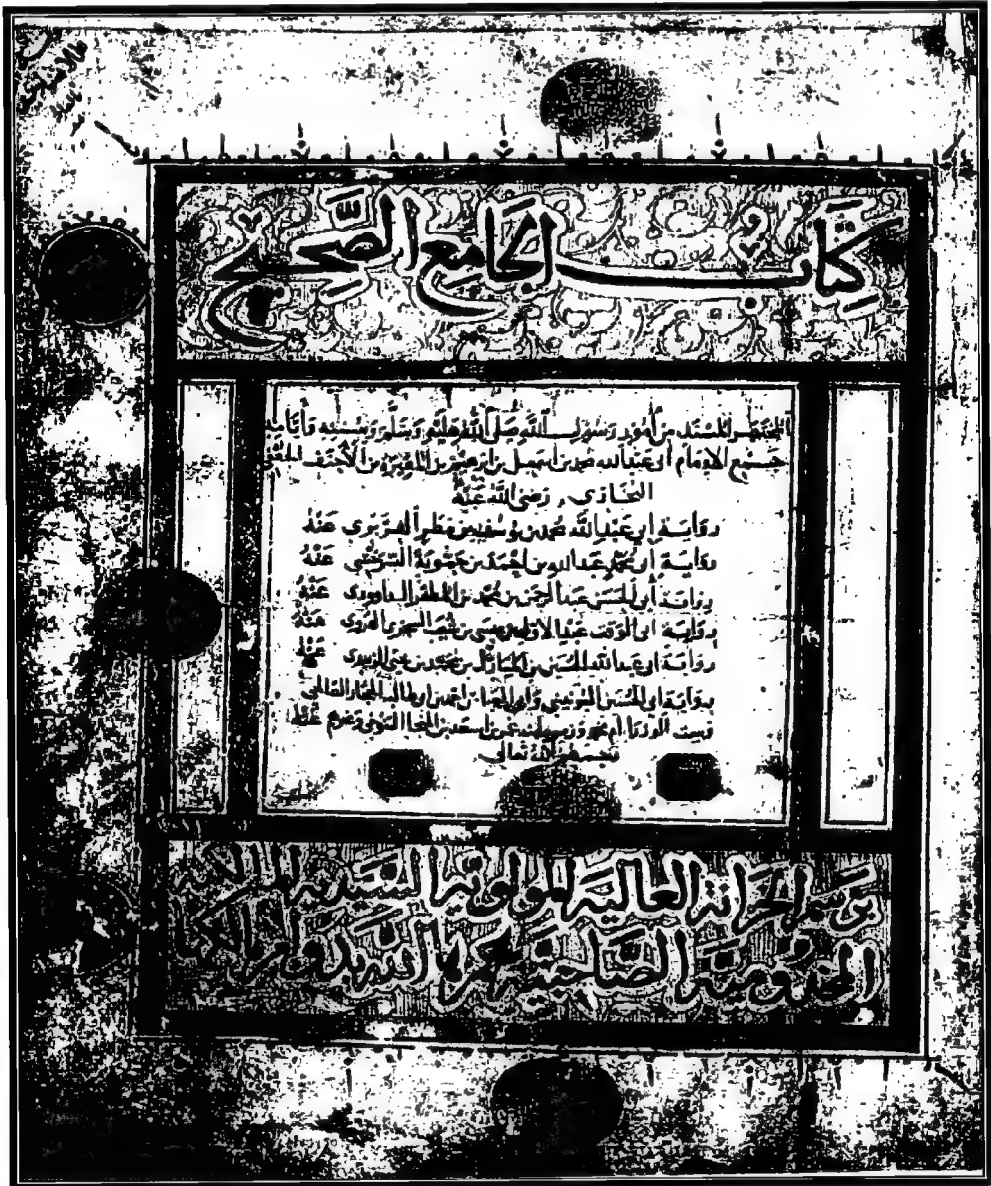 كِتَابُ الجَامِعِ الصَّحِيحِ
المختصر المسند من أمور رسول الله صلى الله عليه وسلم وسننه وأيامه
جمع الإمام أبي عبد الله محمد بن اسمعيل بن ابرهيم بن المغيرة بن الأحنف الجعفي
البخاري رضي الله عنه
رواية أبي عبد الله محمد بن يوسف بن مطر الفربري عنه
رواية أبي محمد عبد الله بن احمد بن حمويه السرخسي عنه
رواية أبي الحسن عبد الرحمن بن محمد بن المظفر الداوودي عنه
رواية أبي الوقت عبد الاول بن عيسى بن شعيب السجزي الهروي عنه
رواية ابي عبد الله الحسين بن المبارك بن محمد بن يحيى الزبيدي عنه
رواية ابي الحسين اليونيني وأبي العباس احمد بن ابي طالب الحجار الصالحي
وست الوزراء أم محمد وزيرة ابنة عمر بن اسعد بن المنجا التنوخي وغيرهم عنه
رحمهم الله تعالى
برسم الخزانة العالية المولوية السيدية المالكية
المخدومية الصاحبية عمرها الله